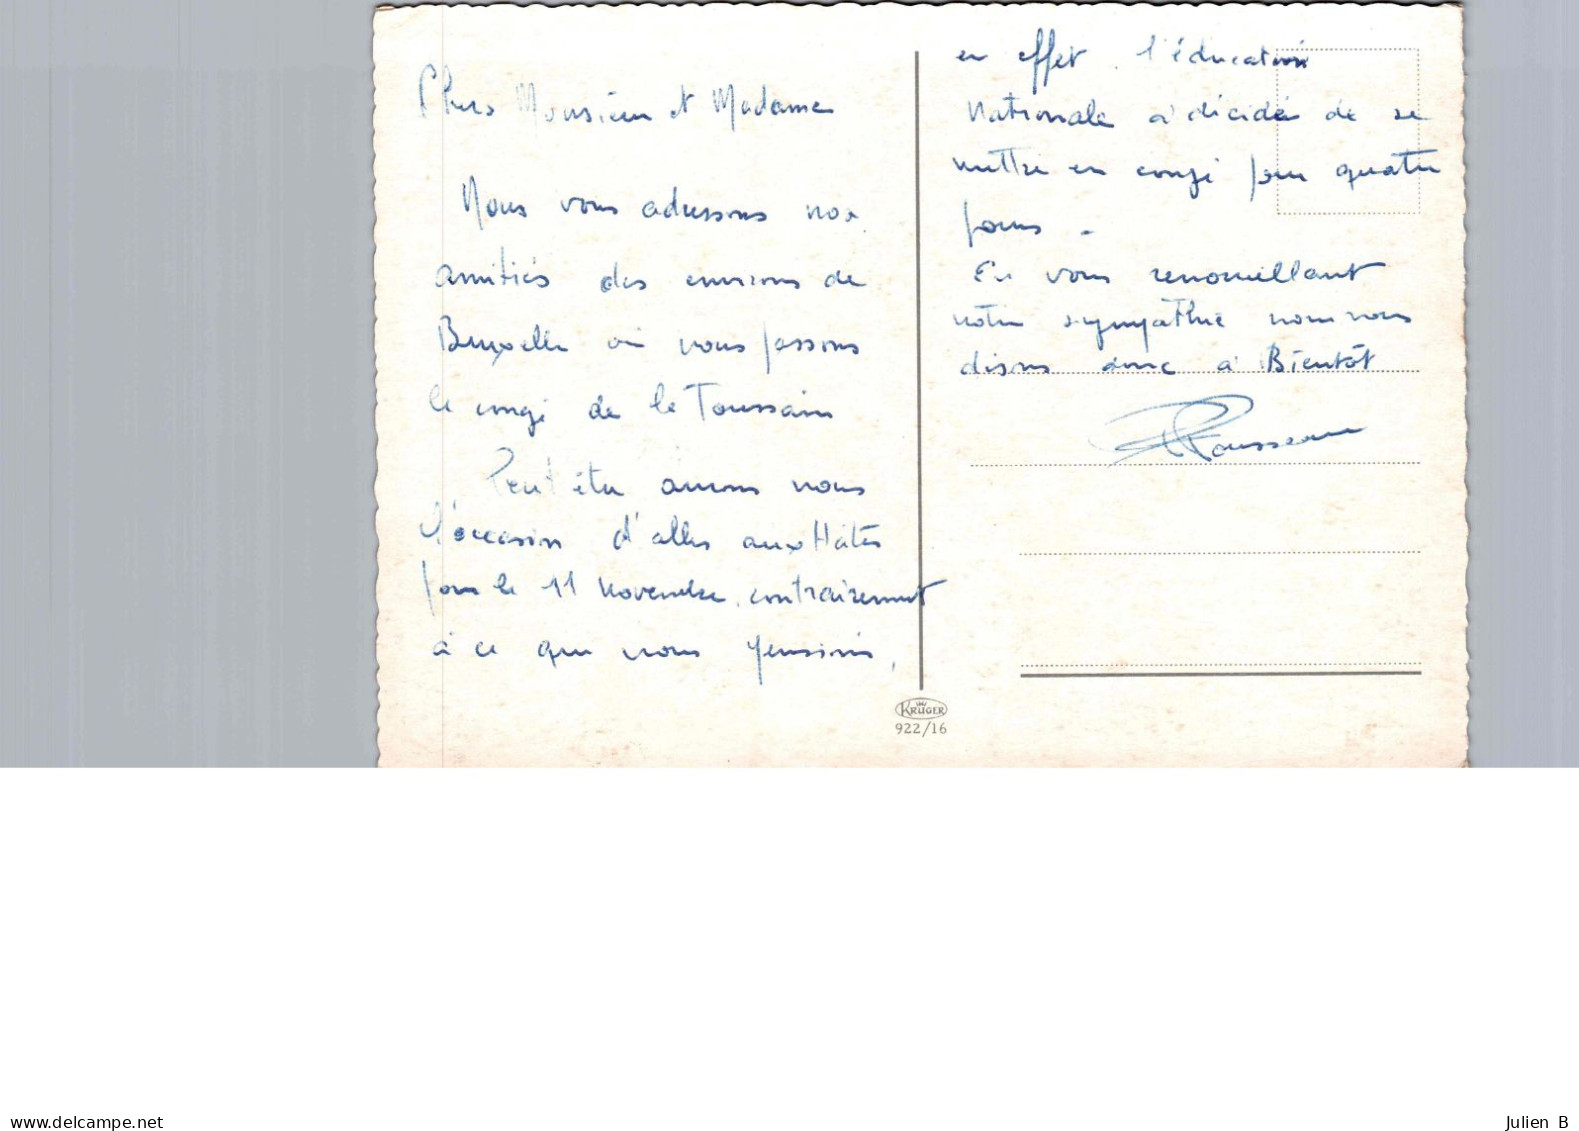 Chers Monsieur et Madame
Nous vous adressons nos
amitiés des environs de
Bruxelle où nous passons
le congé de la Toussain
Peut être aurons nous
l'occasion d'aller aux Hâtes
pour le 11 Novembre, contrairement
à ce que nous pensions,
en effet l'éducation
Nationale a décidé de se
mettre en congé pour quatre
jours.
En vous renouvellant
notre sympathie nous vous
disons donc à Bientôt
Rousseau
KRÜGER
922/16
www.delcampe.net
Julien B